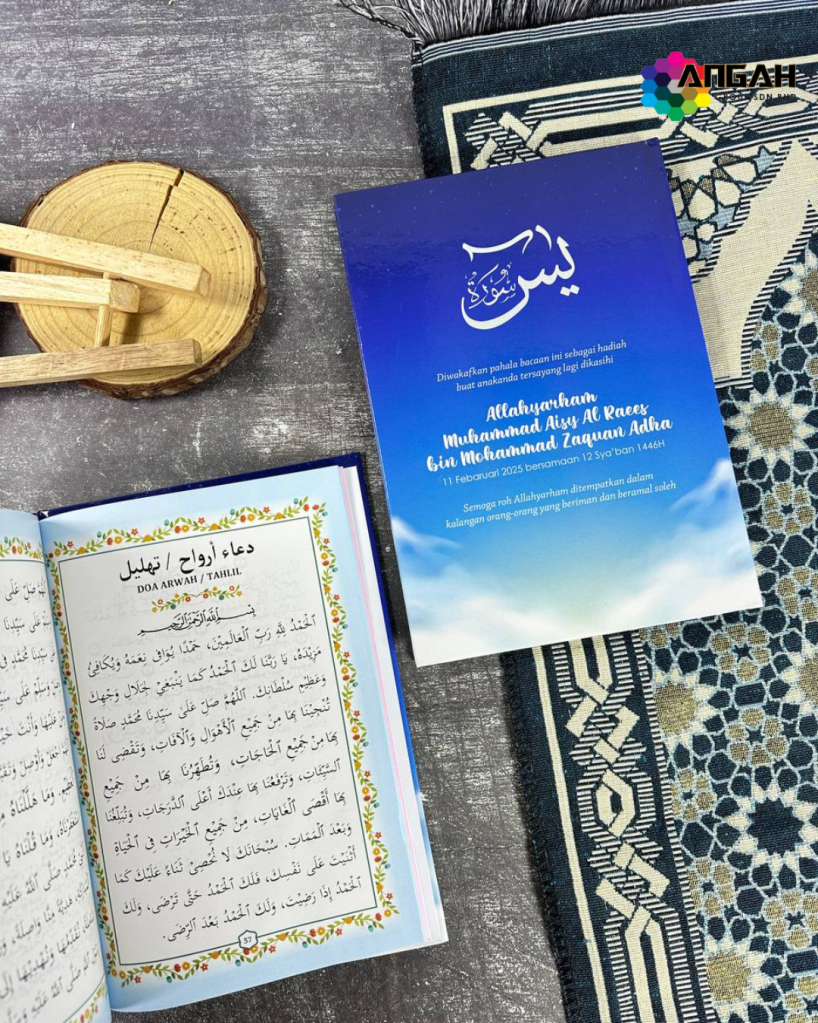 ANGAH
SDN BHD
سورة
يس
Diwakafkan pahala bacaan ini sebagai hadiah
buat anakanda tersayang lagi dikasihi
Allahyarham
Muhammad Aisy Al Raees
bin Mohammad Zaquan Adha
11 Febaruari 2025 bersamaan 12 Sya'ban 1446H
Semoga roh Allahyarham ditempatkan dalam
kalangan orang-orang yang beriman dan beramal soleh
دعاء أرواح / تهليل
DOA ARWAH / TAHLIL
بِسْمِ اللَّهِ الرَّحْمَٰنِ الرَّحِيمِ
اَلْحَمْدُ لِلَّهِ رَبِّ الْعَالَمِيْنَ، حَمْدًا يُوَافِى نِعَمَهُ وَيُكَافِئُ
مَزِيْدَهُ، يَا رَبَّنَا لَكَ الْحَمْدُ كَمَا يَنْبَغِيْ لِجَلَالِ وَجْهِكَ
وَعَظِيْمِ سُلْطَانِكَ. اَللَّهُمَّ صَلِّ عَلَىٰ سَيِّدِنَا مُحَمَّدٍ صَلَاةً
تُنْجِيْنَا بِهَا مِنْ جَمِيْعِ الْأَهْوَالِ وَالْآفَاتِ، وَتَقْضِى لَنَا
بِهَا مِنْ جَمِيْعِ الْحَاجَاتِ، وَتُطَهِّرُنَا بِهَا مِنْ جَمِيْعِ
السَّيِّئَاتِ، وَتَرْفَعُنَا بِهَا عِنْدَكَ أَعْلَى الدَّرَجَاتِ، وَتُبَلِّغُنَا
بِهَا أَقْصَى الْغَايَاتِ، مِنْ جَمِيْعِ الْخَيْرَاتِ فِى الْحَيَاةِ
وَبَعْدَ الْمَمَاتِ. سُبْحَانَكَ لَا نُحْصِيْ ثَنَاءً عَلَيْكَ كَمَا
أَثْنَيْتَ عَلَى نَفْسِكَ، فَلَكَ الْحَمْدُ حَتَّى تَرْضَى، وَلَكَ
الْحَمْدُ إِذَا رَضِيْتَ، وَلَكَ الْحَمْدُ بَعْدَ الرِّضَى.
57